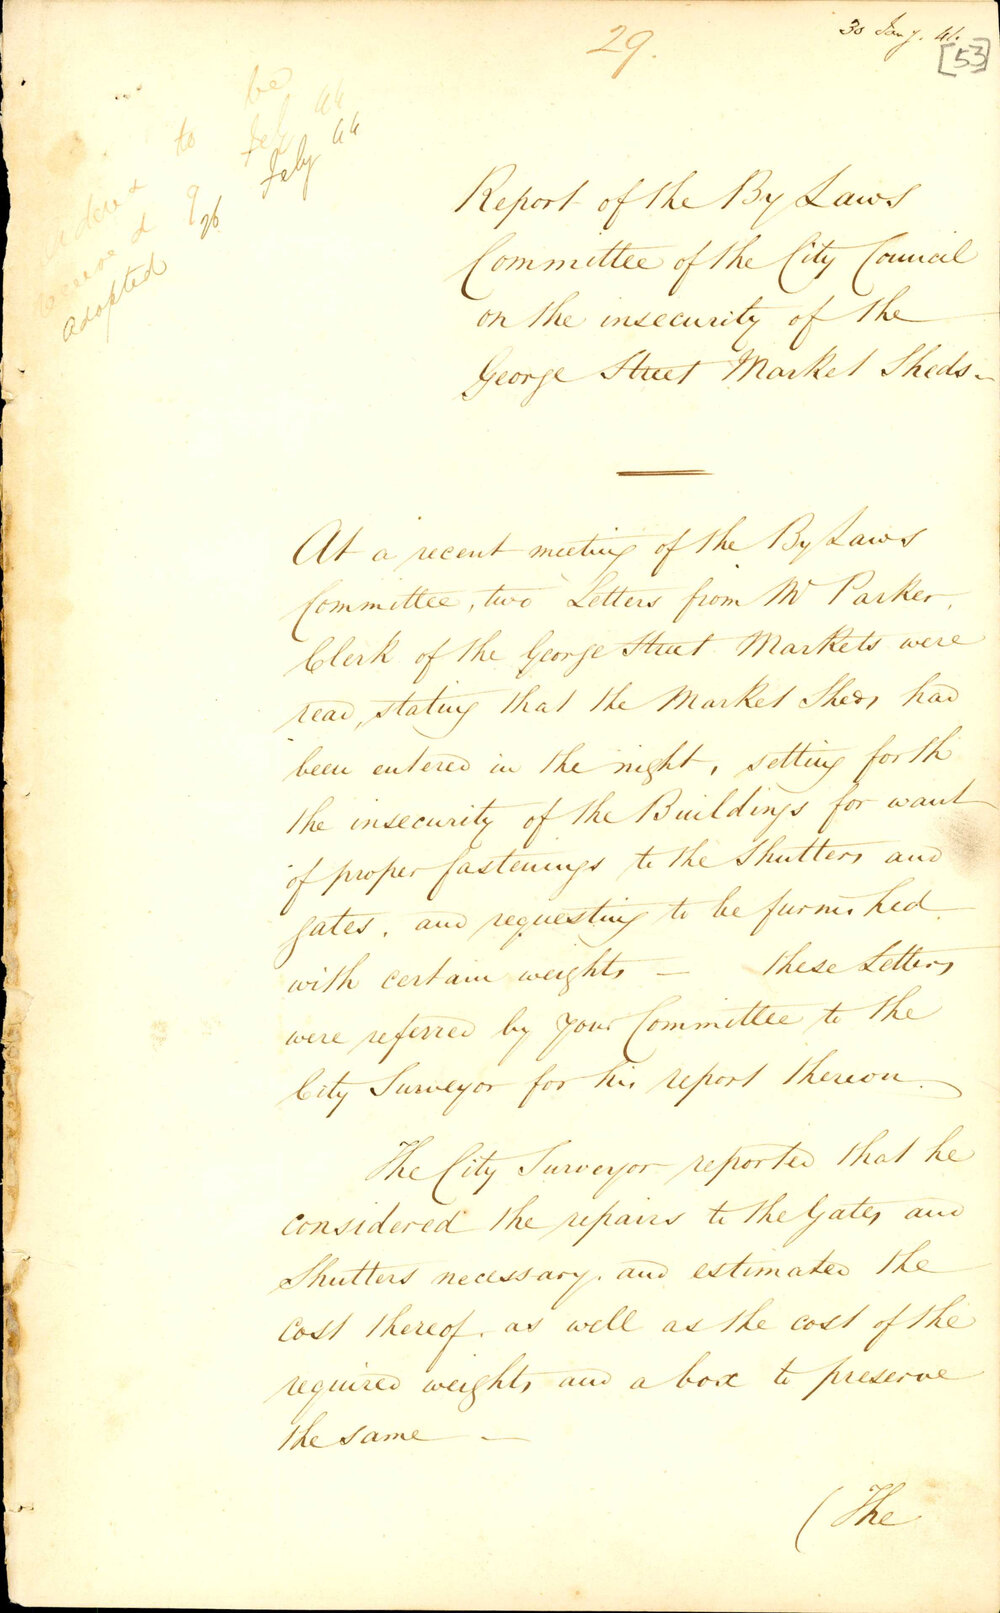 29.
30 Jany. 44.
[53]
be
to Feby 44
received 9 Feby 44
Adopted 26
Report of the By Laws
Committee of the City Council
on the insecurity of the
George Street Market Sheds -
At a recent meeting of the By Laws
Committee, two Letters from Mr Parker,
Clerk of the George Street Markets were
read, stating that the Market Sheds had
been entered in the night, setting forth
the insecurity of the Buildings for want
of proper fastenings to the Shutters and
gates, and requesting to be furnished
with certain weights — these Letters
were referred by your Committee to the
City Surveyor for his report thereon.
The City Surveyor reported that he
considered the repairs to the Gates and
Shutters necessary, and estimated the
cost thereof, as well as the cost of the
required weights and a box to preserve
the same —
(The